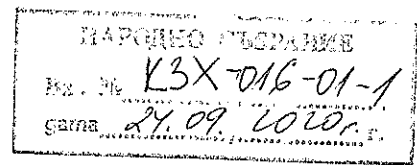 НАРОДНО СЪБРАНИЕ
Вх. № КЗХ-016-01-1
дата 24.09.2020 г. г.